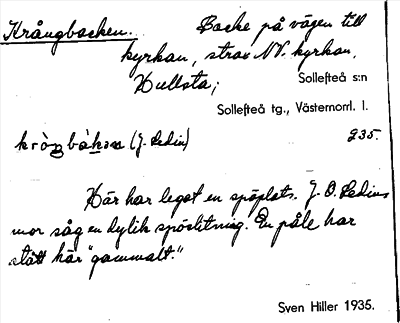 Krångbacken. Backe på vägen till
kyrkan, strax NV. kyrkan.
Hullsta; Sollefteå s:n
Sollefteå tg., Västernorrl. l.
(J. Sedin) 235.
Här har legat en spöplats. J. O. Sedins
mor såg en dylik spöslitning. En påle har
stått här "gammalt."
Sven Hiller 1935.